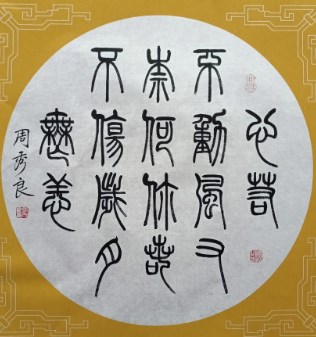 心若
不動風又
奈何你若
不傷歲月
無恙
周秀良